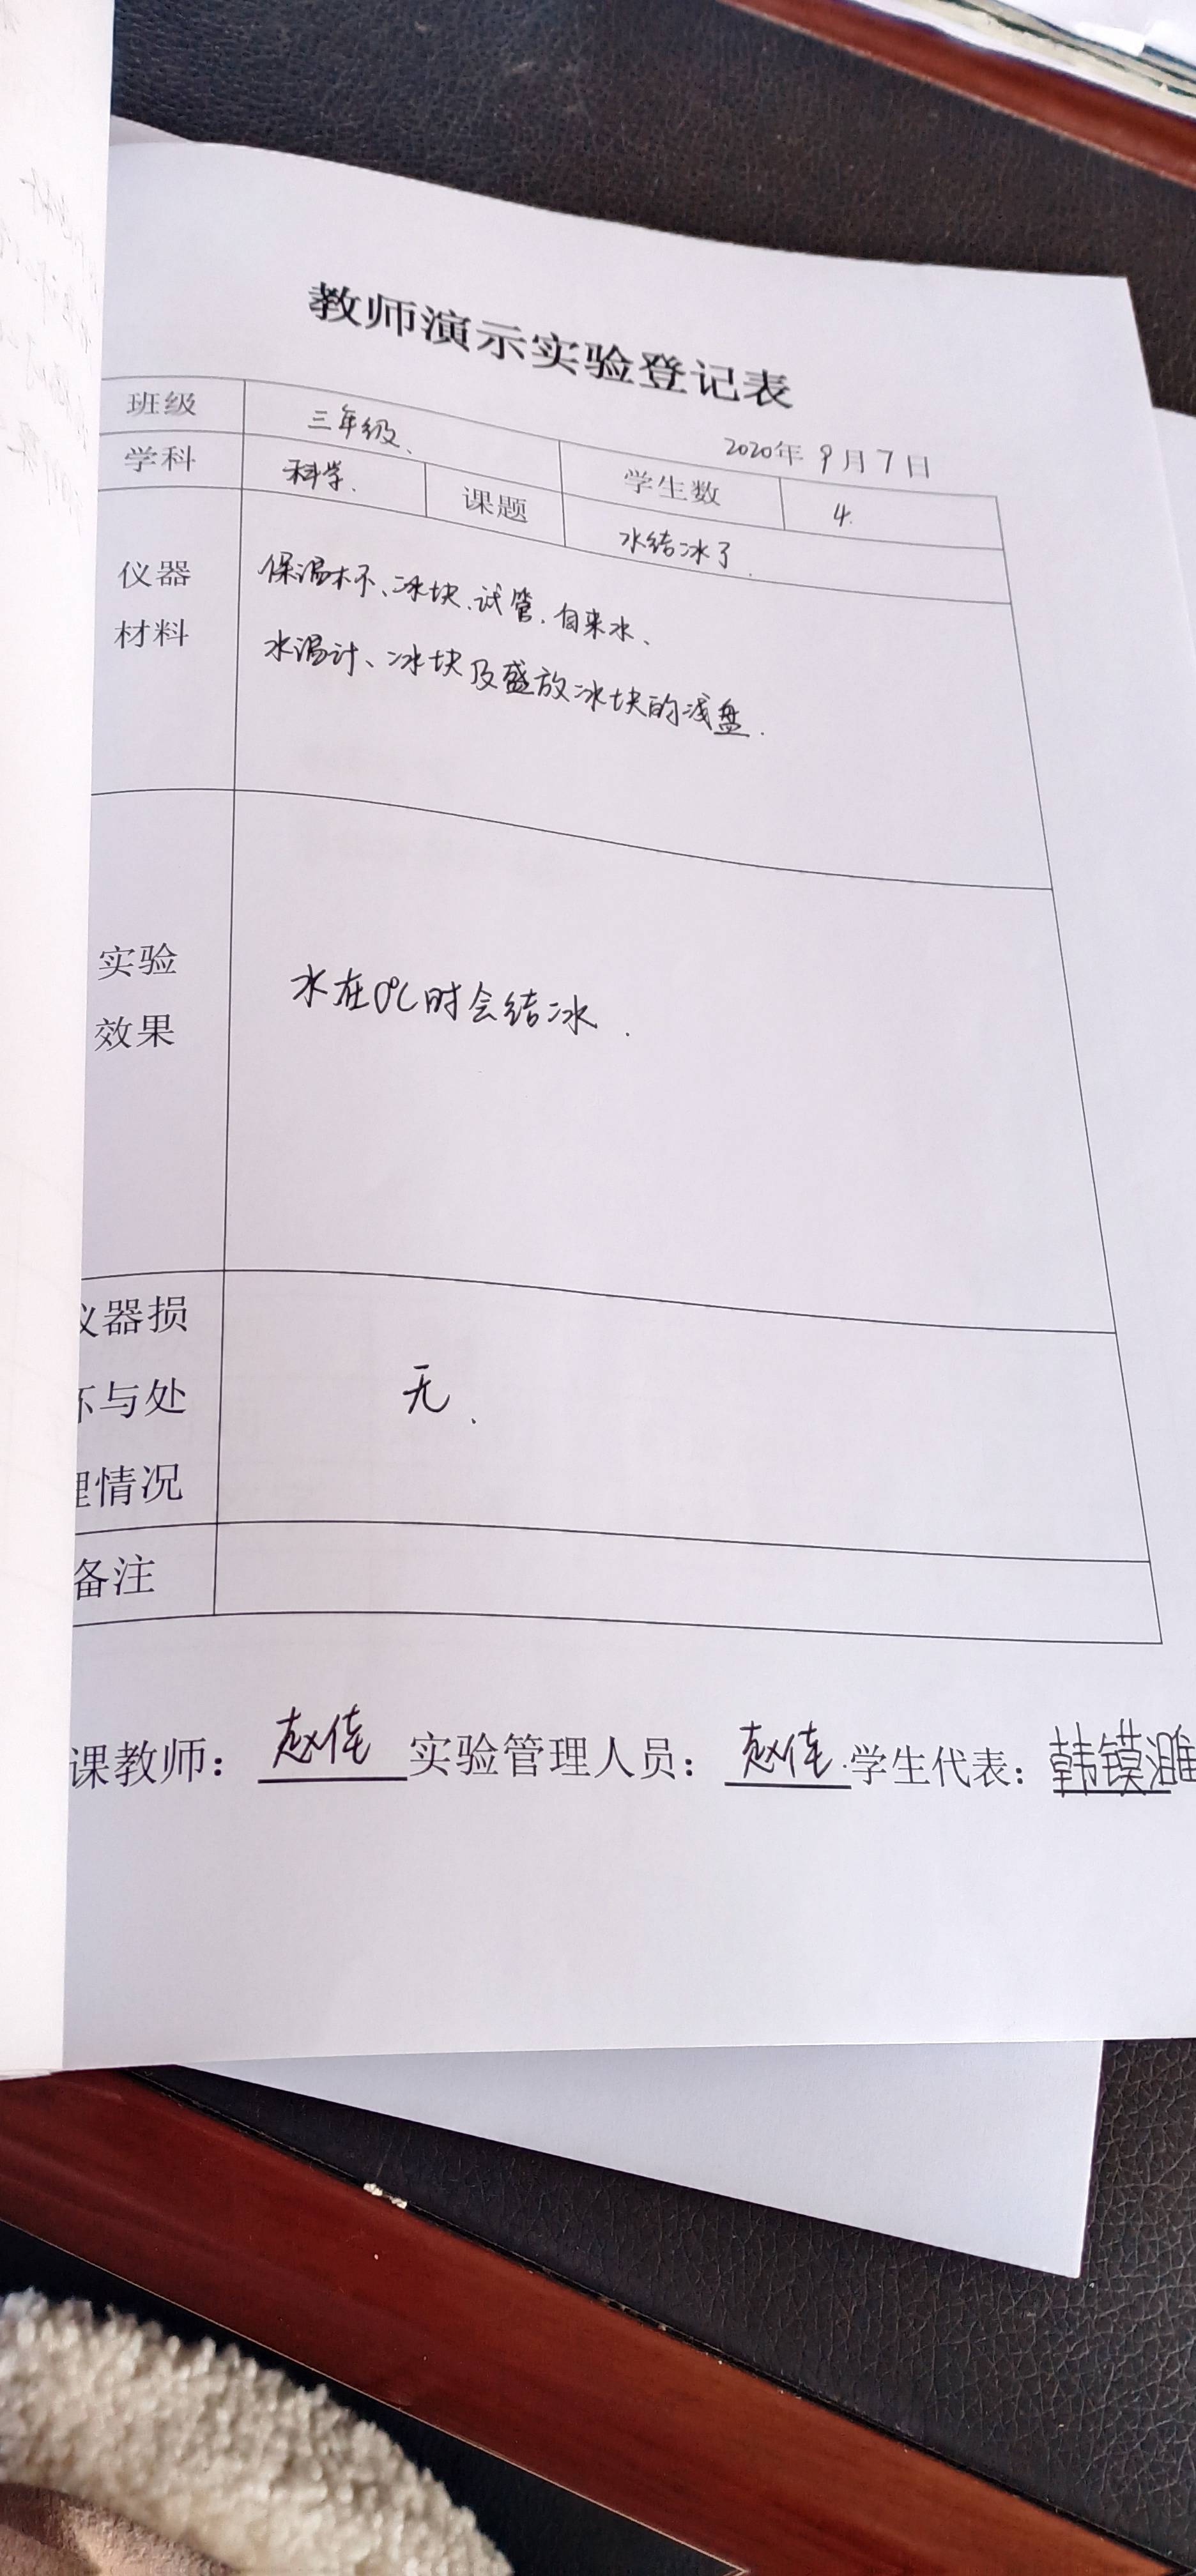 教师演示实验登记表
2020年9月7日
班级 三年级、 学生数 4.
学科 科学. 课题 水结冰了.
仪器
材料
保温杯、冰块、试管、自来水、
水温计、冰块及盛放冰块的浅盘.
实验
效果
水在0℃时会结冰.
仪器损
坏与处
理情况
无、
备注
课教师: 赵佳 实验管理人员: 赵佳. 学生代表: 韩镆